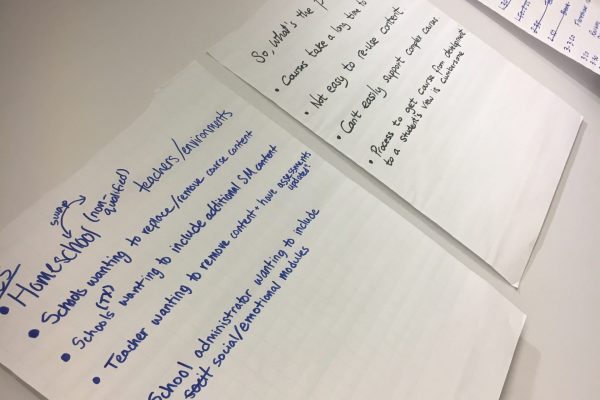 swap
• Homeschool (non-qualified) teachers/environments
• Schools wanting to replace/remove course content
• Schools (TP) wanting to include additional SM content
• Teacher wanting to remove content + have assessments
updated!
School administrator wanting to include
social/emotional modules
So, what's the
• Courses take a long time to
• Not easy to re-use content
• Can't easily support complex courses
• Process to get course from development
to a student's view is cumbersome